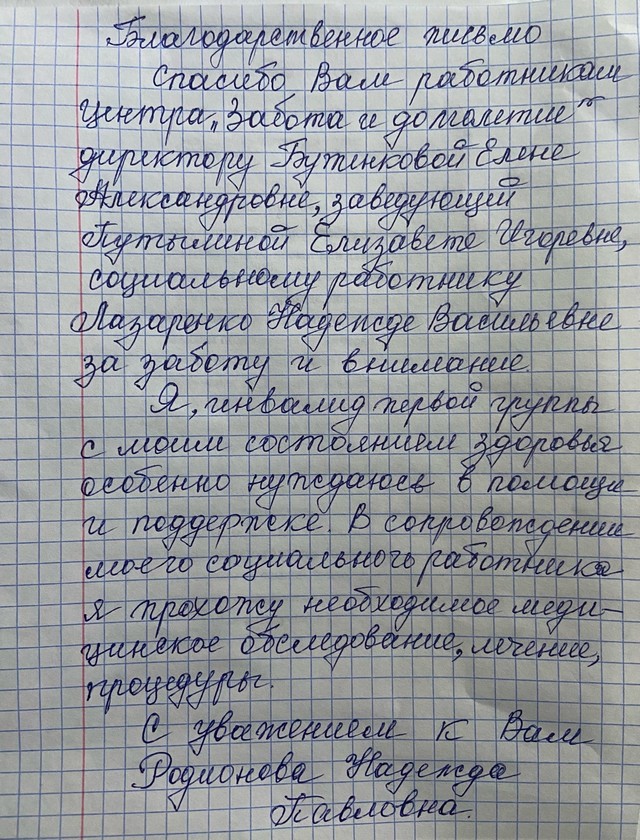 Благодарственное письмо
Спасибо Вам работникам
Центра „Забота и долголетие"
директору Бутенковой Елене
Александровне, заведующей
Путылиной Елизавете Игоревне,
социальному работнику
Лазаренко Надежде Васильевне
за заботу и внимание.
Я, инвалид первой группы
с моим состоянием здоровья
особенно нуждаюсь в помощи
и поддержке. В сопровождении
моего социального работника
я прохожу необходимое меди-
цинское обследование, лечение,
процедуры.
С уважением к Вам
Родионова Надежда
Павловна.